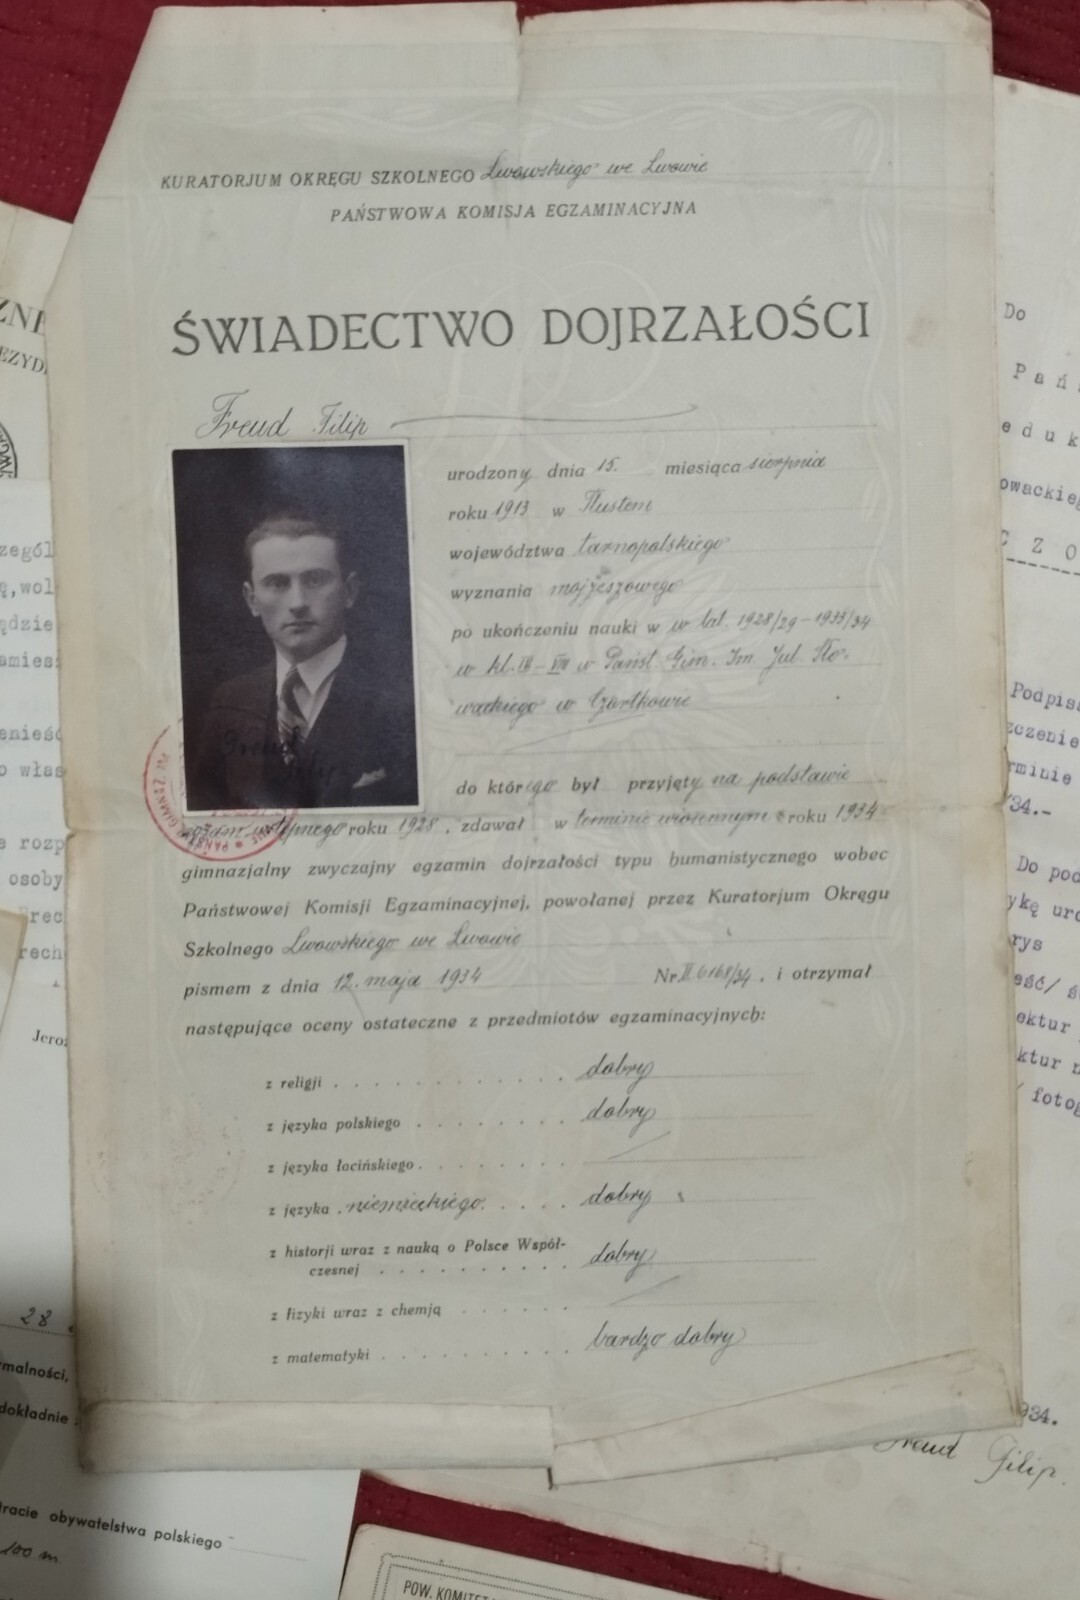 KURATORJUM OKRĘGU SZKOLNEGO Lwowskiego we Lwowie
PAŃSTWOWA KOMISJA EGZAMINACYJNA
ŚWIADECTWO DOJRZAŁOŚCI
Freud Filip
urodzony dnia 15. miesiąca sierpnia
roku 1913 w Tłustem
województwa tarnopolskiego
wyznania mojżeszowego
po ukończeniu nauki w w lat. 1928/29–1933/34
w kl. – VIII w Państ. Gim. Im. Jul. Sło-
wackiego w Czortkowie
do którego był przyjęty na podstawie
egzam. wstępnego roku 1928, zdawał w terminie wiosennym roku 1934
gimnazjalny zwyczajny egzamin dojrzałości typu humanistycznego wobec
Państwowej Komisji Egzaminacyjnej, powołanej przez Kuratorjum Okręgu
Szkolnego Lwowskiego we Lwowie
pismem z dnia 12. maja 1934 Nr. II 6168/34. i otrzymał
następujące oceny ostateczne z przedmiotów egzaminacyjnych:
z religji . . . . . . . . . . . . dobry
z języka polskiego . . . . . . . . dobry
z języka łacińskiego . . . . . . . .
z języka niemieckiego . . . . . dobry
z historji wraz z nauką o Polsce Współ-
czesnej . . . . . . . . . . dobry
z fizyki wraz z chemją . . . . . .
z matematyki . . . . . . . . . . bardzo dobry
Freud
Filip
ZNE
EZYD
zegól
ę,wol
ędzie
amies
enieść
o włas
e rozp
osoby
rech
Jeroz
28
malności,
dokładnie
racie obywatelstwa polskiego
100 m
Do
P a ń
e d u k
owackieg
C Z O
Podpis
zczenie
rminie
/34.-
Do pod
ykę uro
rys
eść/
ektur
ktur
/ fotog
934.
Freud Filip.
POW. KOMITET